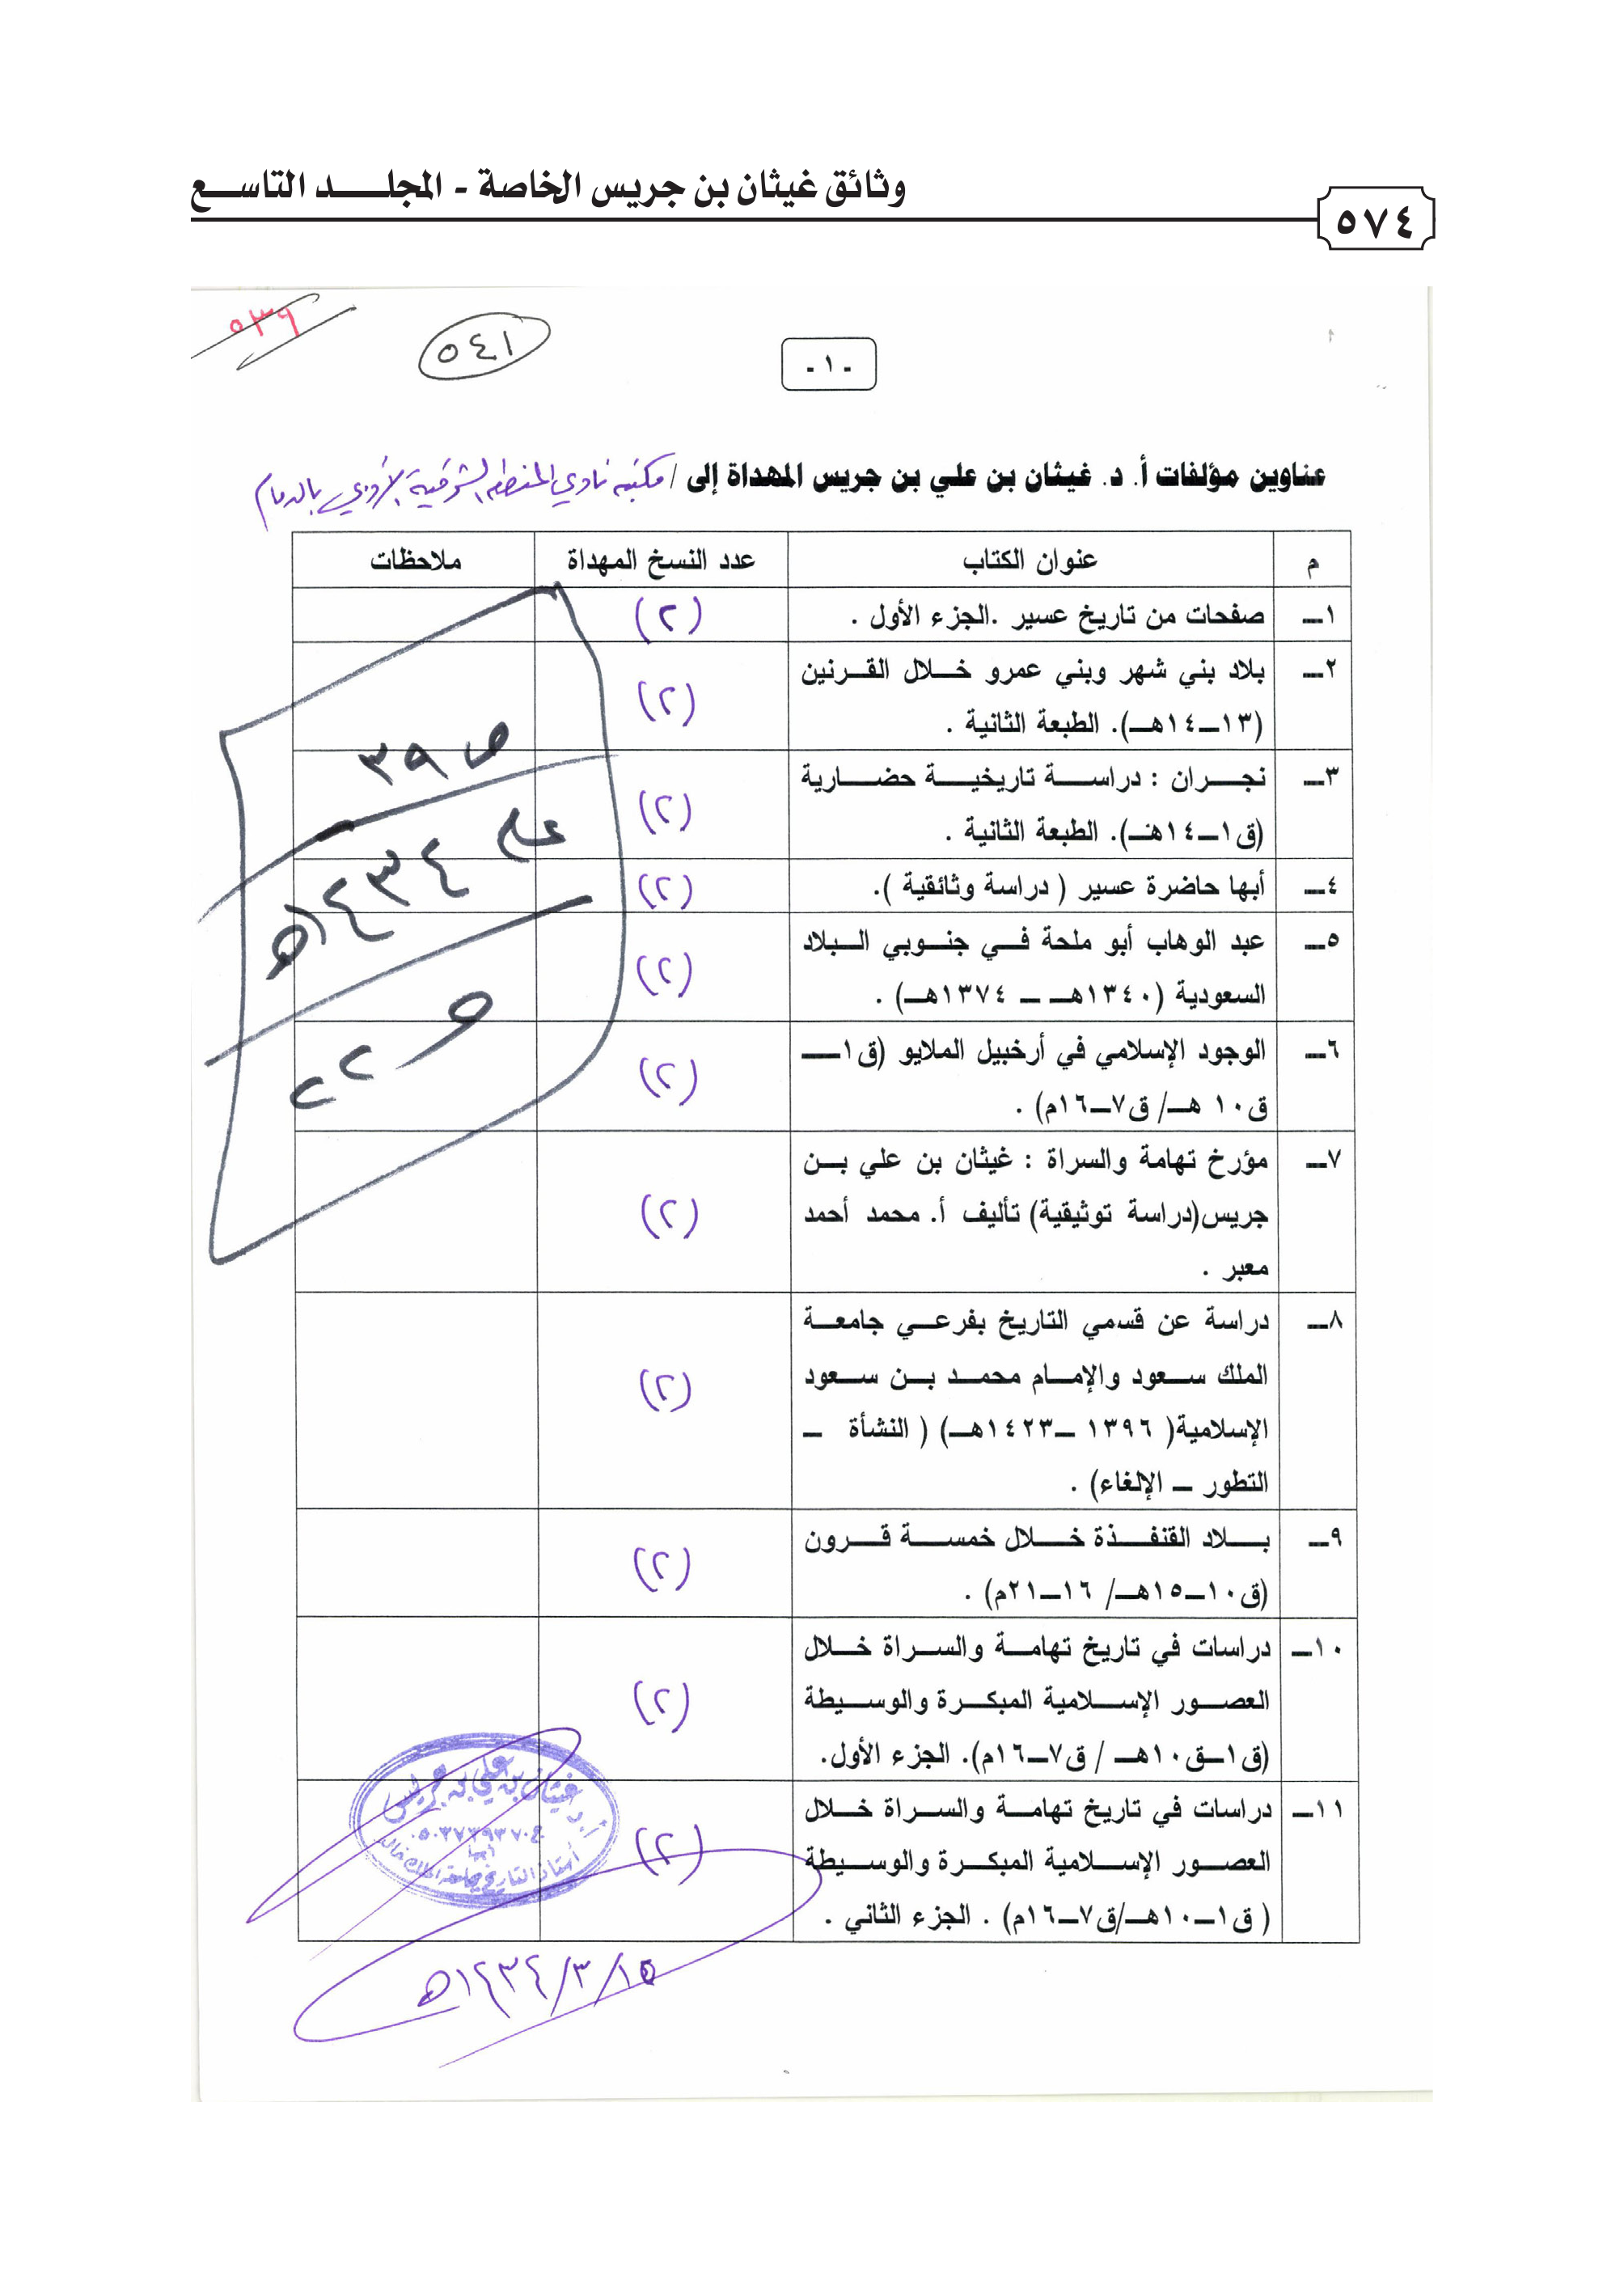 وثائق غيثان بن جريس الخاصة - المجلد التاسع
٥٧٤
٥٣٩
٥٤١
- ١ -
عناوين مؤلفات أ. د. غيثان بن علي بن جريس المهداة إلى / مكتبة نادي المنطقة الشرقية الأدبي بالدمام
م
عنوان الكتاب
عدد النسخ المهداة
ملاحظات
١ـ
صفحات من تاريخ عسير .الجزء الأول .
(٢)
٢ـ
بلاد بني شهر وبني عمرو خلال القرنين
(١٣ـ١٤هـ). الطبعة الثانية .
(٢)
٣ـ
نجران : دراسة تاريخية حضارية
(ق١ـ١٤هـ). الطبعة الثانية .
(٢)
٤ـ
أبها حاضرة عسير ( دراسة وثائقية ).
(٢)
٥ـ
عبد الوهاب أبو ملحة في جنوبي البلاد
السعودية (١٣٤٠هـ ـ ١٣٧٤هـ) .
(٢)
٦ـ
الوجود الإسلامي في أرخبيل الملايو (ق١ـ
ق١٠ هـ/ ق٧ـ١٦م) .
(٢)
٧ـ
مؤرخ تهامة والسراة : غيثان بن علي بن
جريس(دراسة توثيقية) تأليف أ. محمد أحمد
معبر .
(٢)
٨ـ
دراسة عن قسمي التاريخ بفرعي جامعة
الملك سعود والإمام محمد بن سعود
الإسلامية( ١٣٩٦ ـ١٤٢٣هـ) ( النشأة ـ
التطور ـ الإلغاء) .
(٢)
٩ـ
بلاد القنفذة خلال خمسة قرون
(ق١٠ـ١٥هـ/ ١٦ـ٢١م) .
(٢)
١٠ـ
دراسات في تاريخ تهامة والسراة خلال
العصور الإسلامية المبكرة والوسيطة
(ق١ـق١٠هـ / ق٧ـ١٦م). الجزء الأول.
(٢)
١١ـ
دراسات في تاريخ تهامة والسراة خلال
العصور الإسلامية المبكرة والوسيطة
( ق١ـ١٠هـ/ق٧ـ١٦م) . الجزء الثاني .
(٢)
ص ٣٩
علم ١٤٣٤هـ
و ٢٢
أ.د. غيثان بن علي بن جريس
٠٥٠٣٧٣٩٣٧٠٤
أبها
أستاذ التاريخ بجامعة الملك خالد
١٥/٣/١٤٣٤هـ